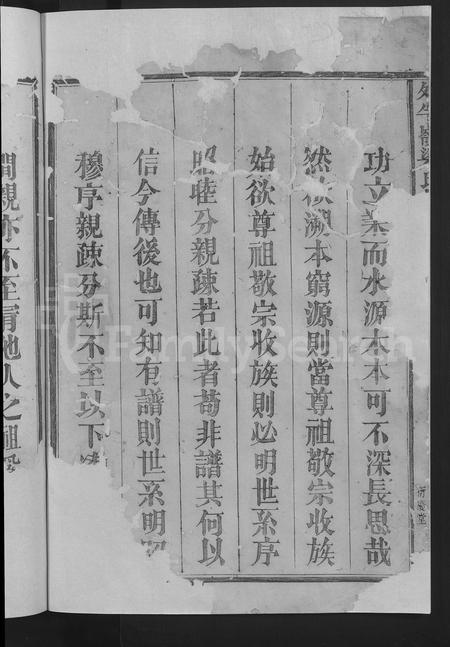 功立業而水源木本可不深長思哉
然欲溯本窮源則當尊祖敬宗收族
始欲尊祖敬宗收族則必明世系序
昭睦分親疎若此者苟非譜其何以
信今傳後也可知有譜則世系明
穆序親疎分斯不至以下
間親亦不至冐他人之祖
FamilySearch